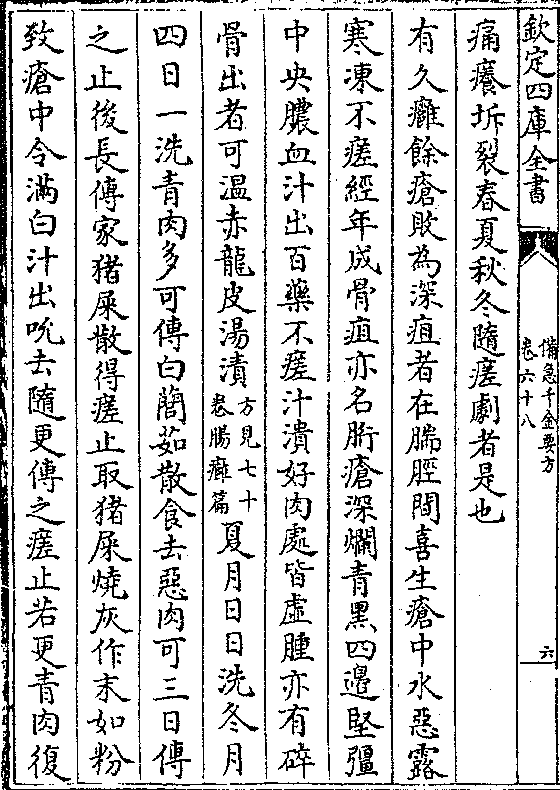 欽定四庫全書
備急千金要方
卷六十八
六
痛癢坼裂春夏秋冬隨瘥劇者是也
有久癰餘瘡敗為深疽者在腨脛間喜生瘡中水惡露
寒凍不瘥經年成骨疽亦名胻瘡深爛青黑四邉堅彊
中央膿血汁出百藥不瘥汁潰好肉處皆虛腫亦有碎
骨出者可温赤龍皮湯漬方見七十卷腸癰篇夏月日日洗冬月
四日一洗青肉多可傅白䕡茹散食去惡肉可三日傅
之止後長傅家猪屎散得瘥止取猪屎燒灰作末如粉
致瘡中令滿白汁出吮去隨更傅之瘥止若更青肉復